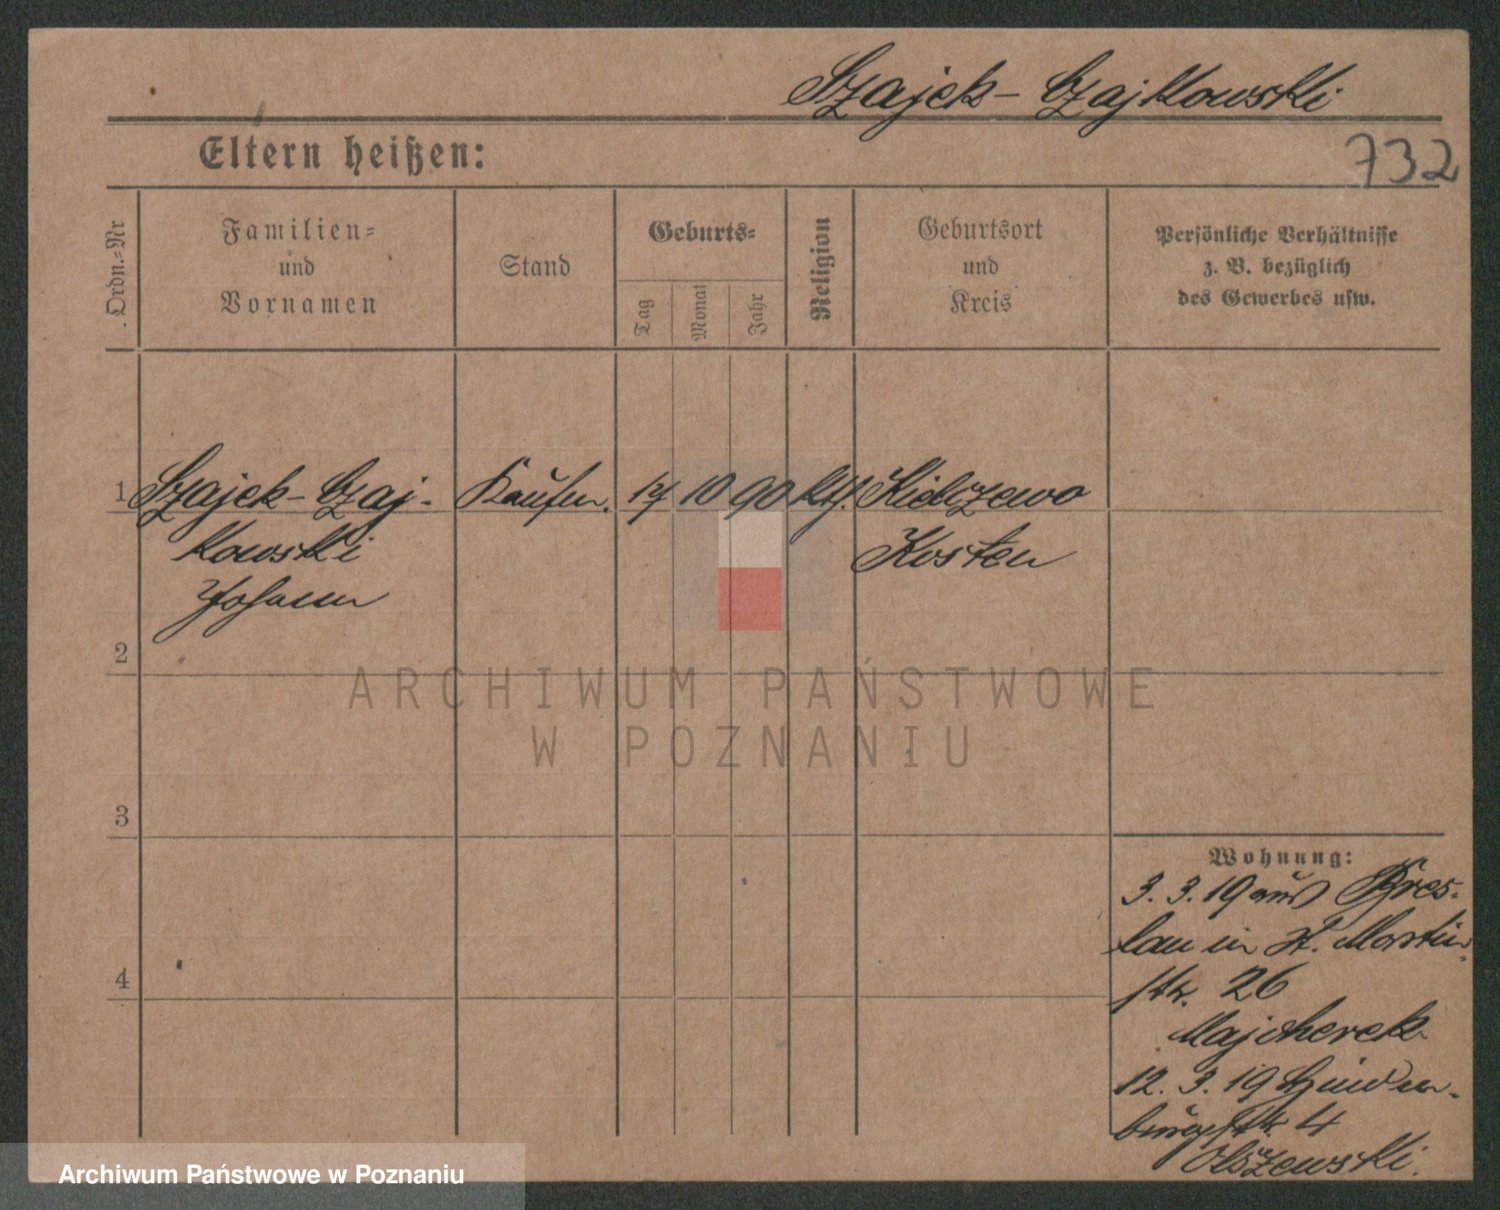 Szajek-Czajkowski
Eltern heißen:
732
Ordn.=Nr
Familien=
und
Vornamen
Stand
Geburts=
Tag
Monat
Jahr
Religion
Geburtsort
und
Kreis
Persönliche Verhältnisse
z. B. bezüglich
des Gewerbes usw.
1 Szajek-Czaj- Kaufm. 17 10 90 kth. Kiebczewo
kowski Kosten
Johann
2
ARCHIWUM PAŃSTWOWE
W POZNANIU
3
Wohnung:
3. 3. 19 aus Bres-
lau in St. Martin-
4
str. 26
Majcherek
12. 3. 19 Hinden-
burgstr. 4
Olszewski.
Archiwum Państwowe w Poznaniu